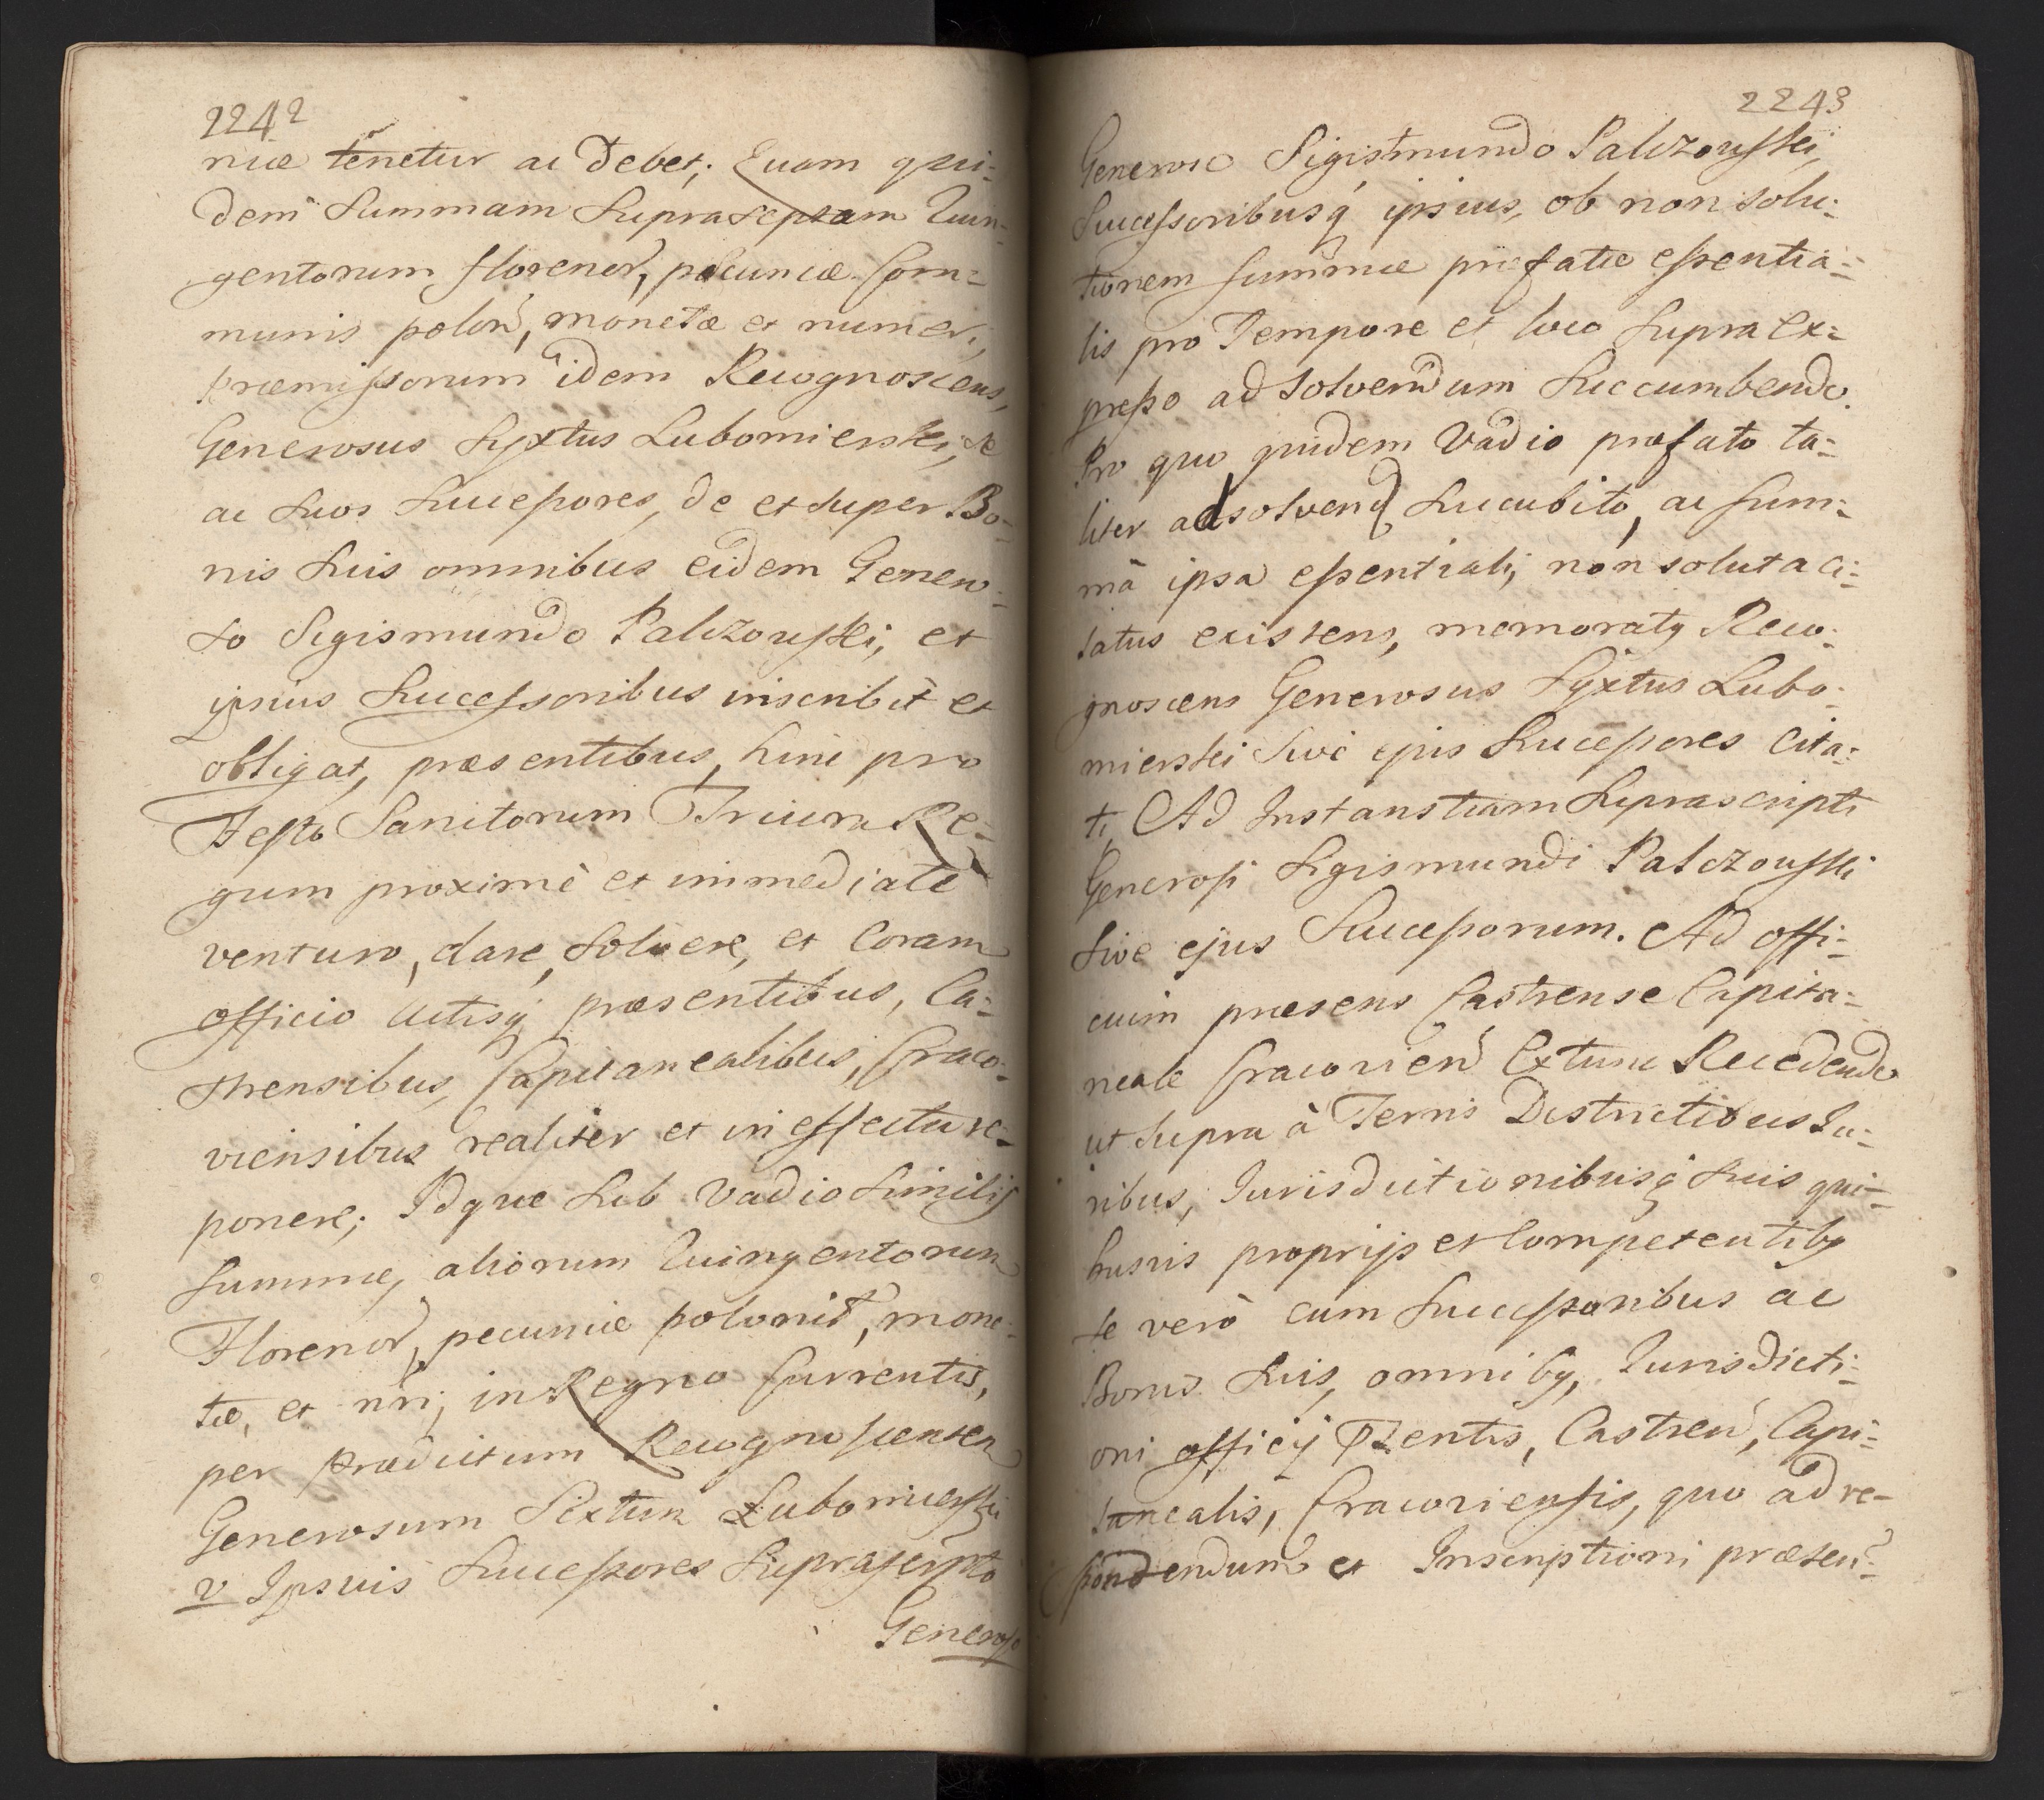 2242
niæ tenetur ac Debet; Quam qui-
dem Summam Suprascriptam Quin-
gentorum florenor, pecuniæ Com-
munis polon, monetæ et numeri,
præmissorum idem Recognoscens,
Generosus Syxtus Lubomierski, se
ac Suos Successores, de et super Bo-
nis Suis omnibus eidem Genero-
so Sigismundo Palczouski, et
ipsius Successoribus inscribit et
obligat, præsentibus, hinc pro
Festo Sanctorum Trium Re-
gum proximè et immediatè
venturo, dare, Solvere, et Coram
officio Actisq præsentibus, Ca-
strensibus, Capitanealibus, Craco-
viensibus realiter et in effectu re-
ponere; Idque Sub Vadio Similis
Summæ, aliorum Quingentorum
Florenor, pecuniæ polonic, mone-
tæ, et nri, in Regno Currentis,
per prædictum Recognoscentem
Generosum Sixtum Lubomierski
v Ipsius Successores Suprascripto
Generoso
2243
Generoso Sigistmundo Palczouski,
Successoribusq ipsius, ob non Solu-
tionem summæ præfatæ essentia-
lis pro Tempore et loco Supra ex-
presso ad Solvendum Succumbendo.
Pro quo quidem Vadio præfato ta-
liter adsolvend Sucubito, ac Sum-
mâ ipsa essentiali, non soluta Ci-
tatus existens, memoratq Reco-
gnoscens Generosus Syxtus Lubo-
mierski Sive ejus Successores Cita-
ti, Ad Instanstiam Suprascripti
Generosi Sigismundi Palczouski
Sive ejus Successorum. Ad offi-
cium præsens Castrense Capita-
neale Cracovien Extunc Recedendo
ut Supra à Terris Districtibus Iu-
ribus, Iurisdictionibusq Suis qui-
busvis proprijs et Competentibq
se verò cum Successoribus ac
Bonis Suis, omnibq, Iurisdicti-
oni officij Pzentis, Castren, Capi-
tanealis, Cracoviensis, quo ad re-
spondendum et Inscriptioni præsen-